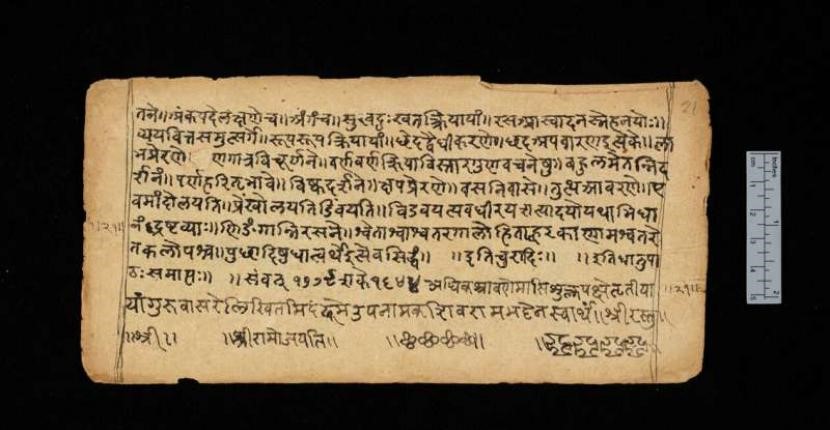 तने॥ अंकपदेलक्षणेच॥ अंगंच॥ सुखदुःखतत्क्रियायां॥ रसआस्वादनस्नेहनयोः॥
व्ययवित्तसमुत्सर्गे॥ रूपरूपक्रियायां॥ छेदद्वैधीकरणे॥ छदअपवारणइत्येके॥ ला
भप्रेरणे॥ गात्रविचूर्णने॥ वर्णवर्णक्रियाविस्तारगुणवचनेषु॥ बहुलमेतन्निद
र्शनं॥ पर्णहरितभावे॥ विष्कदर्शने॥ क्षपप्रेरणे॥ वसनिवासे॥ तुत्थआवरणे॥ ए
वमांदोलयति॥ प्रेंखोलयति विडंबयत्यवधीरयत्यादयोयथाभिधा
नंद्रष्टव्याः॥ णिङंगान्निरसने॥ श्वेताश्वाश्वतरगालोडिताह्वरकाणामश्वतरे
तकलोपश्च॥ पुच्छादिषुधात्वर्थइत्येवसिद्धं॥ ॥इतिचुरादिः॥ ॥इतिधातुपा
ठः समाप्तः॥ ॥संवत् १७७९ शके १६४४ अधिकश्रावणेमासिशुक्लपक्षेतृतीया
यां गुरुवासरेलिखितमिदं उपनामकशिवरामभट्टेनस्वार्थं॥श्रीरस्तु॥
॥श्री॥ ॥श्रीरामोजयति॥